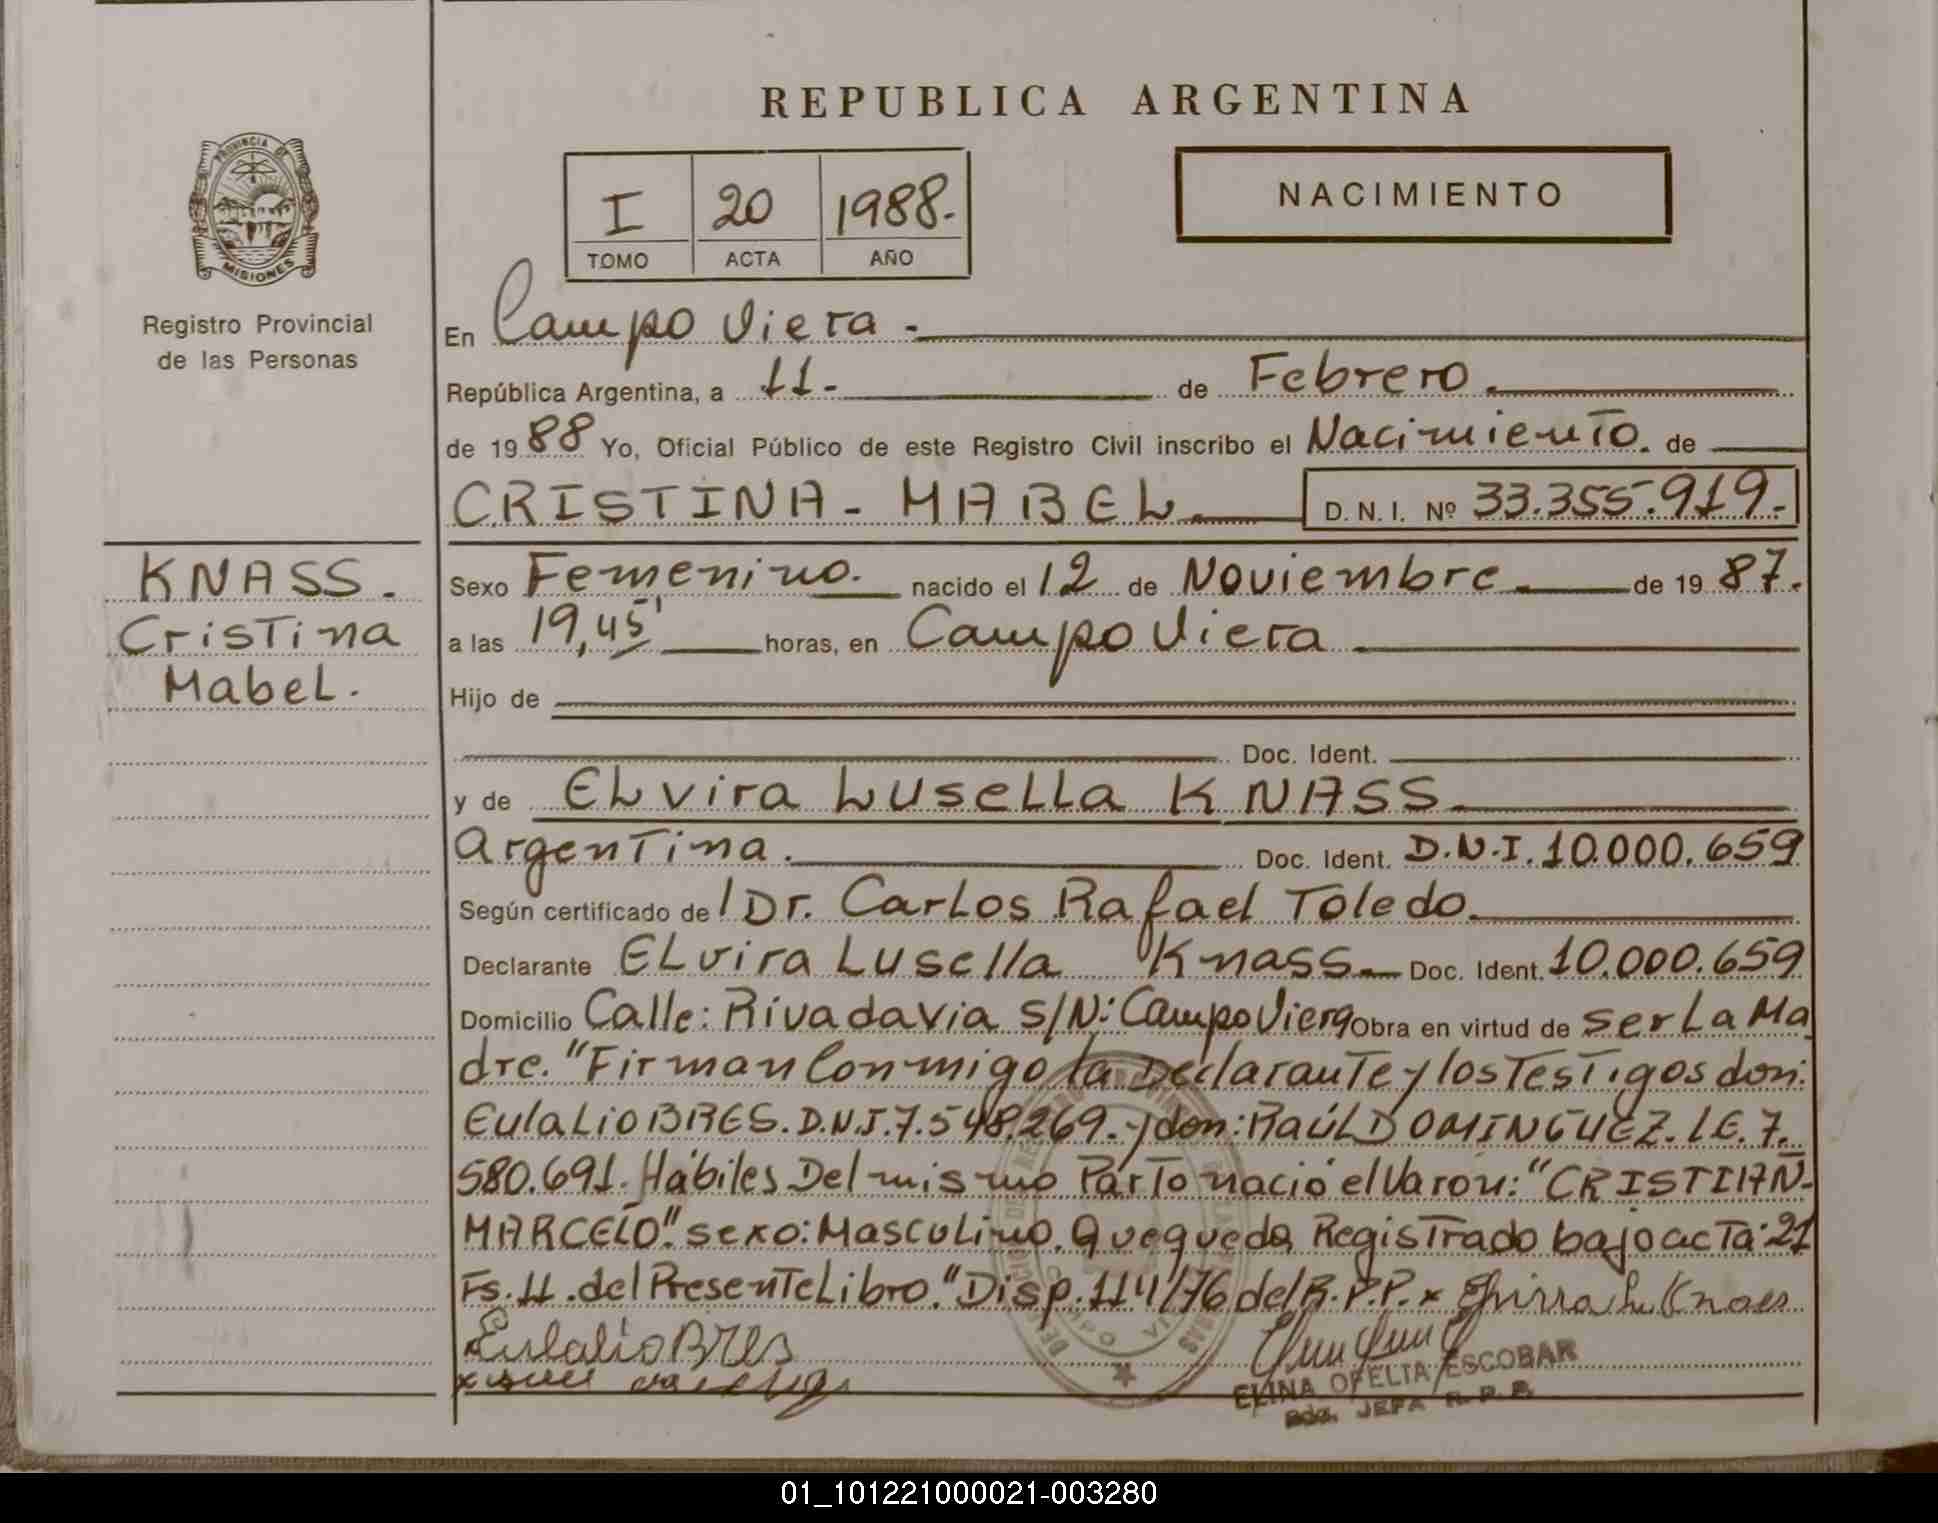 REPUBLICA ARGENTINA
PROVINCIA DE
MISIONES
Registro Provincial
de las Personas
I 20 1988.
TOMO ACTA AÑO
NACIMIENTO
En Campo Viera.
República Argentina, a 11. de Febrero.
de 1988 Yo, Oficial Público de este Registro Civil inscribo el Nacimiento. de
CRISTINA - MABEL D. N. I. Nº 33.355.919.-
KNASS.
Cristina
Mabel.
Sexo Femenino. nacido el 12 de Noviembre. de 1987.
a las 19,45' horas, en Campo Viera
Hijo de
Doc. Ident.
y de Elvira Lusella KNASS.
argentina. Doc. Ident. D.N.I. 10.000.659
Según certificado de Dr. Carlos Rafael Toledo.
Declarante Elvira Lusella Knass. Doc. Ident. 10.000.659
Domicilio Calle: Rivadavia S/N: Campo Viera Obra en virtud de ser La Ma
dre. "Firman Conmigo la Declarante y los Testigos don:
Eulalio BRES. D.N.I. 7.548.269. y don: RAÚL DOMINGUEZ. L.E. 7.
580.691. Hábiles Del mismo Parto nació el Varón: "CRISTIAN-
MARCELO". sexo: Masculino. Que queda Registrado bajo acta: 21
Fs. 11. del Presente Libro." Disp. 114/76 del R.P.P. x Elvira L. Knass
Eulalio Bres
ELINA OFELIA ESCOBAR
JEFA R. P. P.
01_101221000021-003280